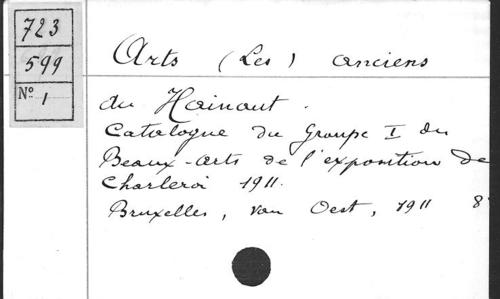 723
599
N° 1
Arts (Les) anciens
du Hainaut.
Catalogue du Groupe I des
Beaux-arts de l'exposition de
Charleroi 1911.
Bruxelles, van Oest, 1911 8°